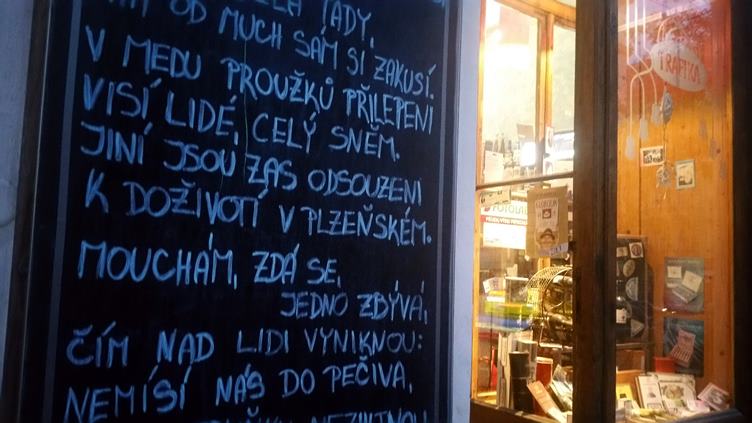 TADY,
OD MUCH SÁM SI ZAKUSÍ.
V MEDU PROUŽKŮ PŘILEPENI
VISÍ LIDÉ, CELÝ SNĚM.
JINÍ JSOU ZAS ODSOUZENI
K DOŽIVOTÍ V PLZEŇSKÉM.
MOUCHÁM, ZDÁ SE,
JEDNO ZBÝVÁ,
ČÍM NAD LIDI VYNIKNOU:
NEMÍSÍ NÁS DO PEČIVA,
TRAFIKA